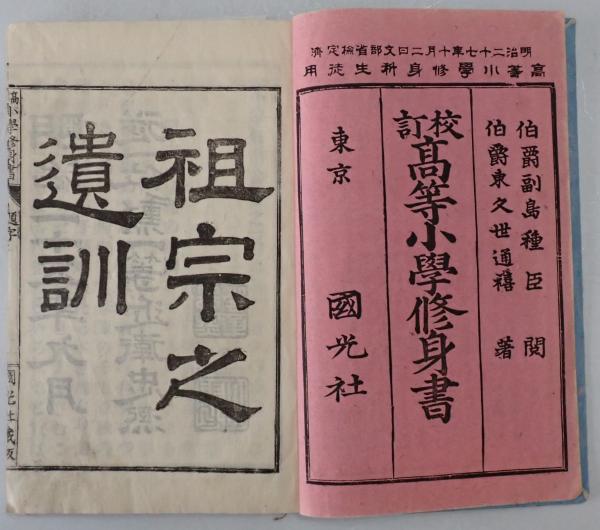 明治二十七年十月二日文部省檢定濟
高等小學修身科生徒用
伯爵副島種臣 閲
伯爵東久世通禧 著
校訂
高等小學修身書
東京 國光社
祖宗之
遺訓
國光社藏版